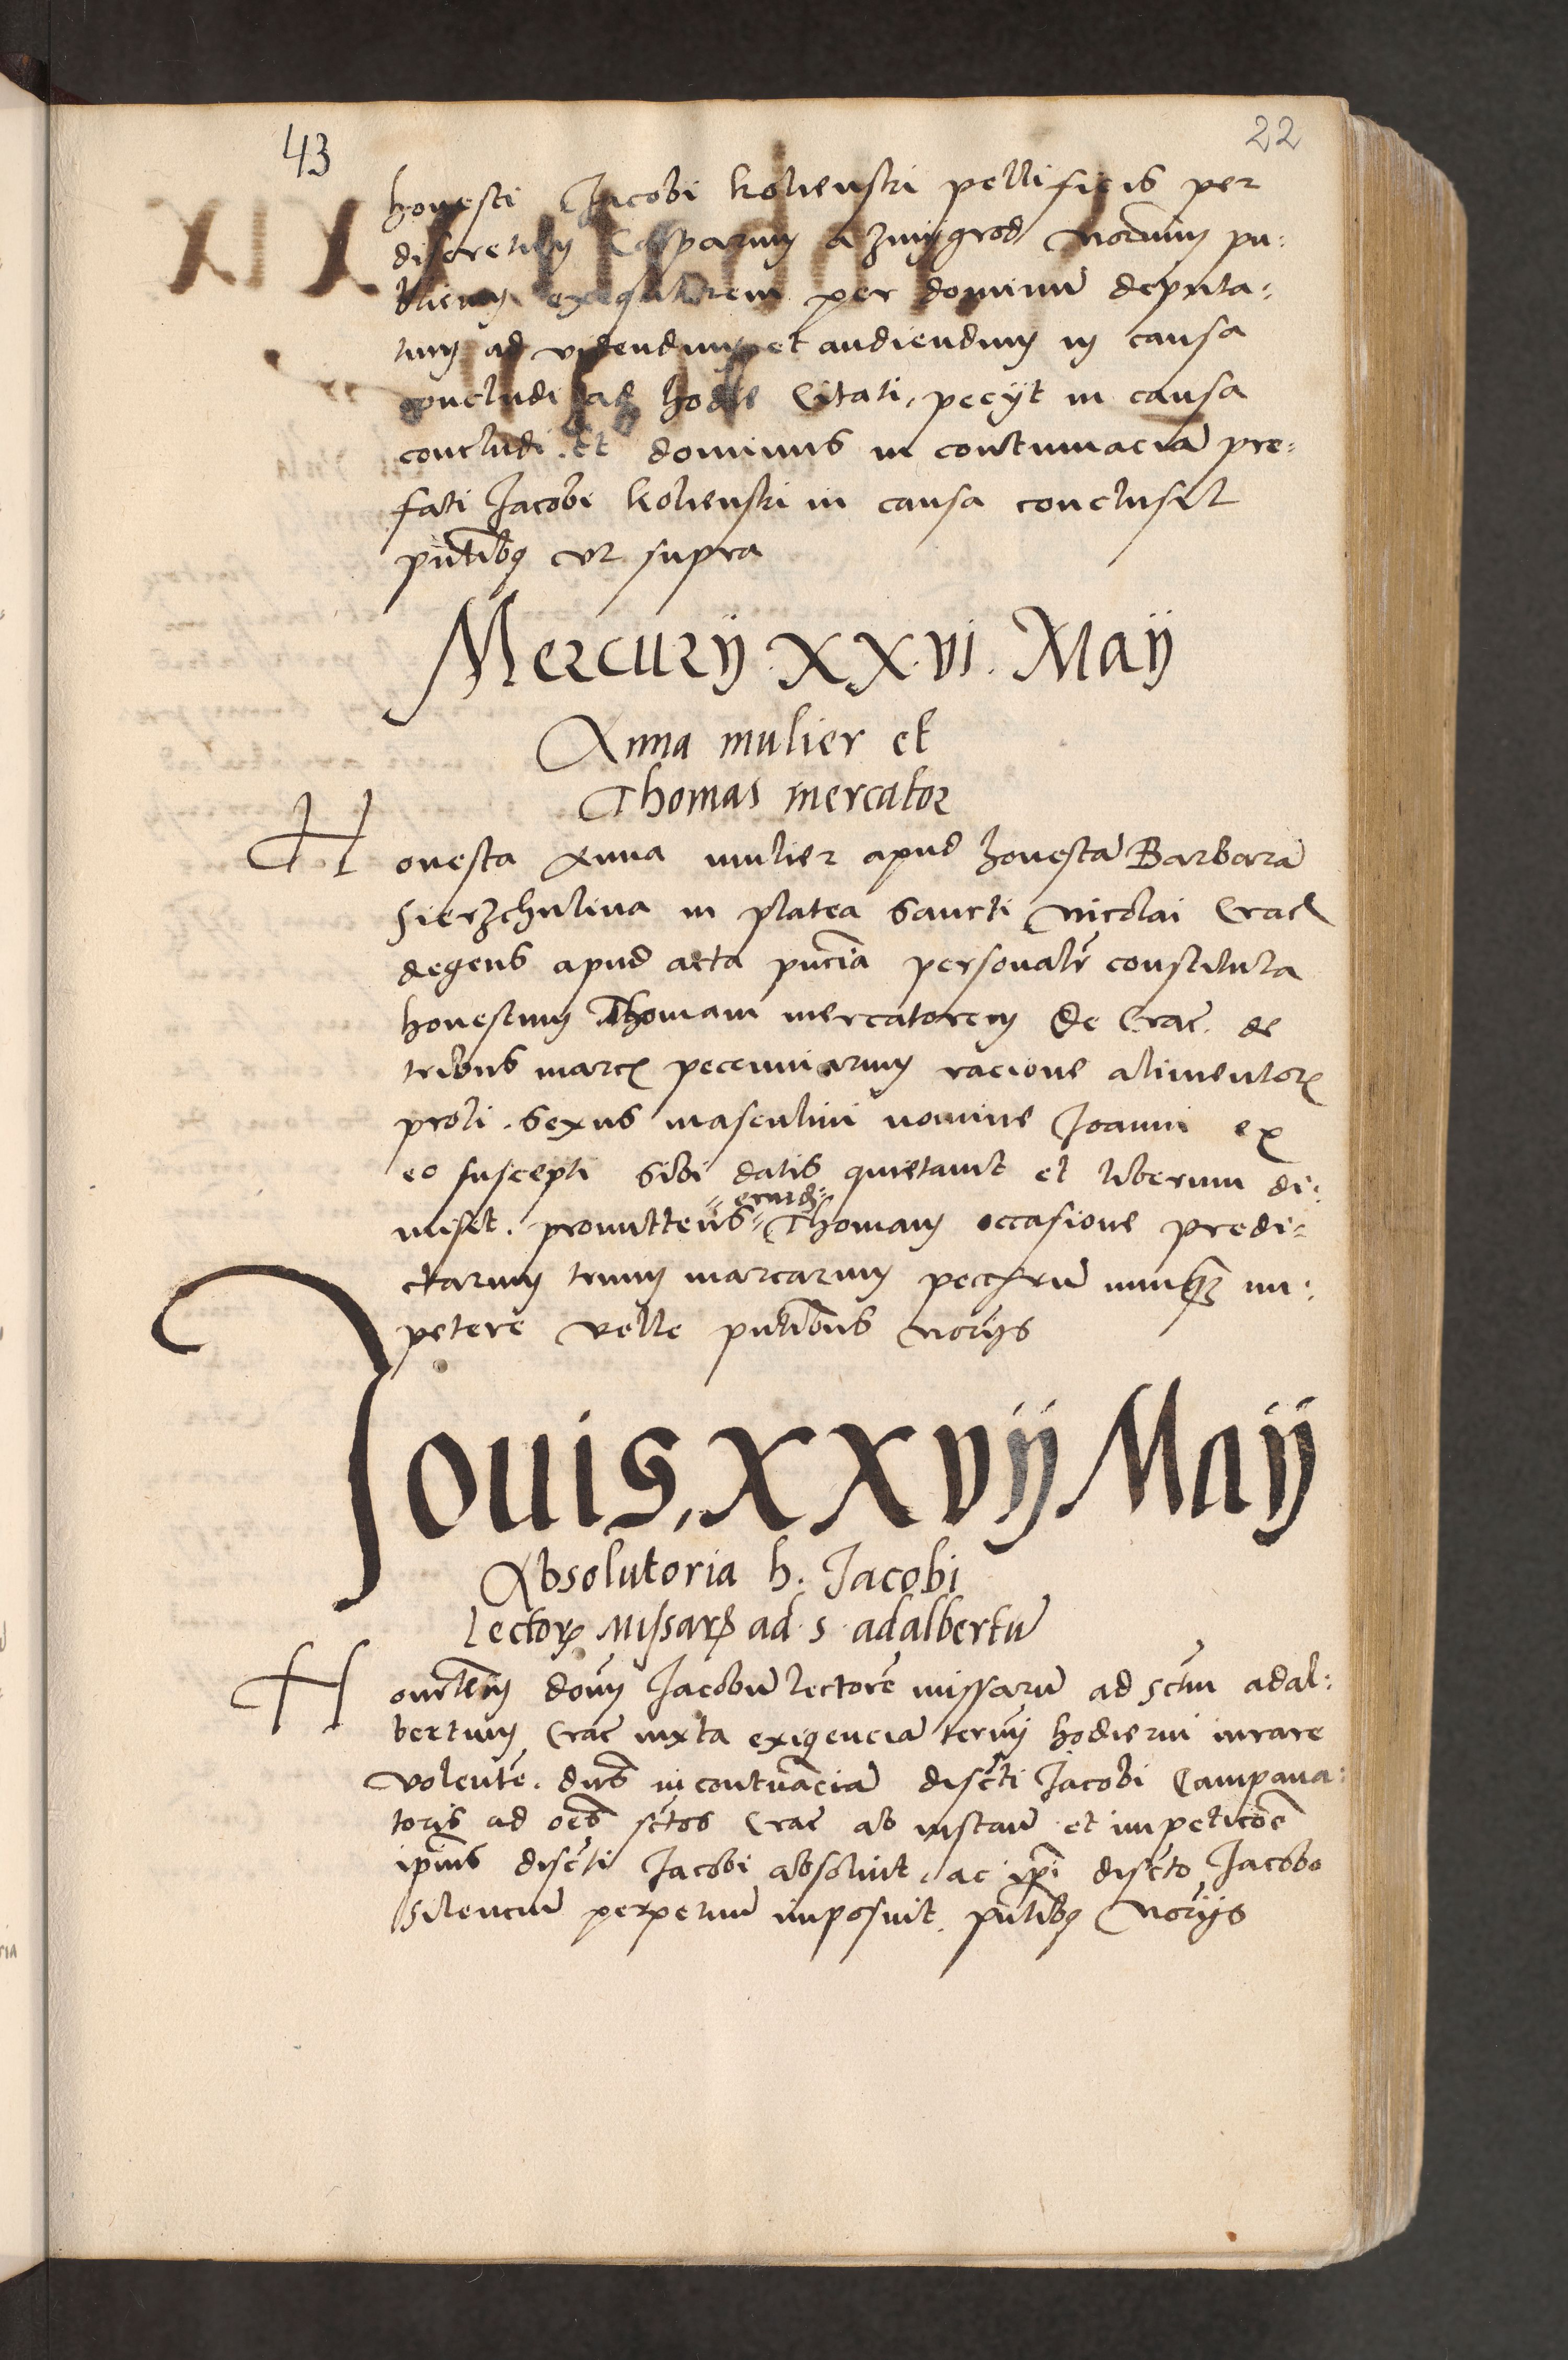 43
22
honesti Jacobi Kolienski pellificis per
discretum Casparum a Zmijgrod Notarium pu:
blicum exequutorem per dominũ deputa:
tum ad videndum et audiendum in causa
concludi ad hodie Citati, pecijt in causa
concludi. Et dominus in contumaciã pre:
fati Jacobi Kolienski in causa conclusit
pñtibq vt supra
Mercurij . XX.vi. Maij
Anna mulier et
Thomas mercator
Honesta Anna mulier apud honestã Barbarã
in platea Sancti Nicolai Crac
degens apud acta pñcia personalr̃ constituta
honestum Thomam mercatorem de Crac. de
tribus marcꝭ pecuniarum racione alimentoꝝ
proli . sexus masculini nomine Joanni ex
eo suscepti sibi datis quietauit et liberum di:
misit . promittens eund Thomam occasione predi:
ctarum trium marcarum nunq̃ im:
petere velle pñtibus Norijs
Jouis, XXvij Maij
Absolutoria h. Jacobi
Lectoꝝ Missarꝝ ad . s . adalbertũ
Honrlem dom̃ Jacobũ lectorẽ missarũ ad sctm adal:
bertum Crac iuxta exigenciã termi hodierni iurare
volentẽ . dns̃ in contuãciã discti Jacobi Campana:
toris ad oẽs sctos Crac ab instañ et impeticõe
ipius discti Jacobi absoluit, ac ipi discto Jacobo
silenciũ perpetuũ imposuit . pñtibq Norijs